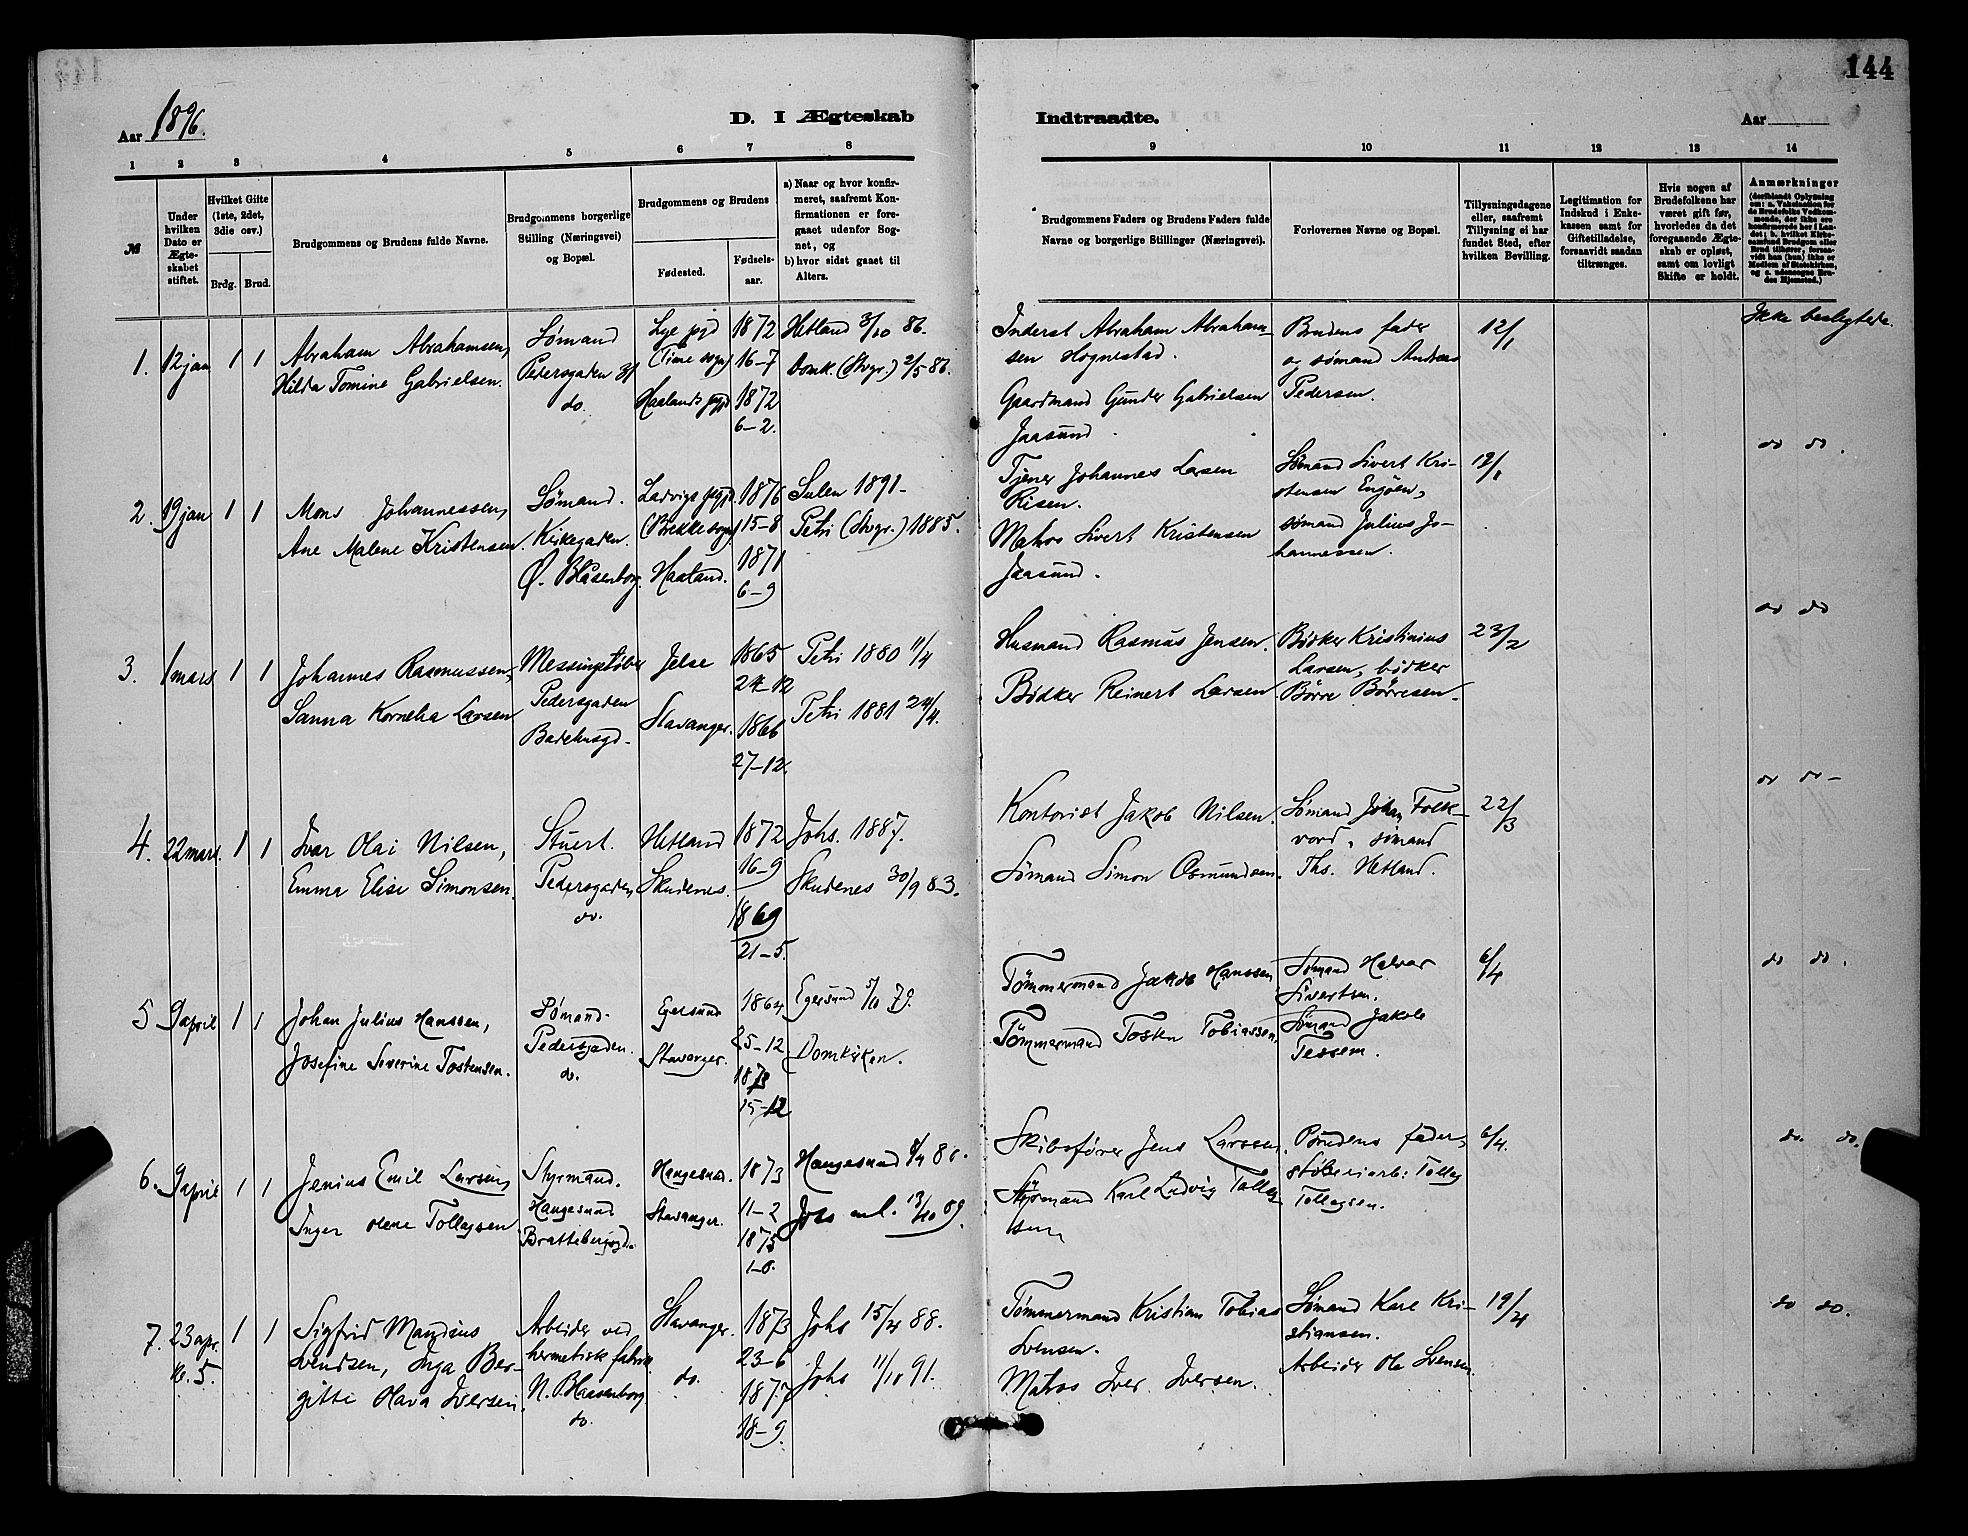 144
Aar 1896.
D. I Ægteskab Indtraadte.
Aar
1 2 3 4 5 6 7 8 9 10 11 12 13 14
№
Under hvilken Dato er Ægteskabet stiftet.
Hvilket Gifte (1ste, 2det, 3die osv.)
Brdg. Brud.
Brudgommens og Brudens fulde Navne.
Brudgommens borgerlige Stilling (Næringsvei) og Bopæl.
Brudgommens og Brudens
Fødested.
Fødselsaar.
a) Naar og hvor konfirmeret, saafremt Konfirmationen er foregaaet udenfor Sognet, og
b) hvor sidst gaaet til Alters.
Brudgommens Faders og Brudens Faders fulde Navne og borgerlige Stillinger (Næringsvei).
Forlovernes Navne og Bopæl.
Tillysningsdagene eller, saafremt Tillysning ei har fundet Sted, efter hvilken Bevilling.
Legitimation for Indskud i Enkekassen samt for Giftetilladelse, forsaavidt saadan tiltrænges.
Hvis nogen af Brudefolkene har været gift før, hvorledes da det foregaaende Ægteskab er opløst, samt om lovligt Skifte er holdt.
Anmærkninger
1. 12 jan 1 1
Abraham Abrahamsen,
Hilda Tomine Gabrielsen.
Sømand
Pedersgaden 31
do.
Lye pgd
(Time sogn)
Haalands pgd
1872
16-7
1872
6-2.
Hetland 3/10 86.
Domk. (Stvgr.) 2/5 86.
Inderst Abraham Abrahamsen Hognestad.
Gaardmand Gunder Gabrielsen
Jaasund.
Brudens fader
og sømand Andreas
Pedersen.
12/1
Ikke beslægtede.
2. 19 jan 1 1
Mons Johannessen,
Ane Malene Kristensen.
Sømand.
Kirkegaden.
Ø. Blåsenborg.
Ladvigs pgd.
(Brekke sogn)
Haaland.
1876
15-8
1871
6-9
Sulen 1891-
Petri (Stvgr.) 1885.
Tjener Johannes Larsen
Risen.
Matros Sivert Kristensen
Jaasund.
Sømand Sivert Kristensen Engøen,
sømand Julius Johannessen.
12/1
do do.
3. 1 mars 1 1
Johannes Rasmussen,
Sanna Kornelia Larsen
Messingstøber
Pedersgaden
Badehusgd-
Jelse
Stavanger.
1865
24-12
1866
27-12.
Petri 1880 11/4
Petri 1881 24/4.
Husmand Rasmus Jensen.
Bødker Reinert Larsen.
Bødker Kristinius
Larsen, bødker
Børre Børresen-
23/2
do do
4. 22 mars. 1 1
Ivar Olai Nilsen,
Emma Elise Simonsen.
Stuert.
Pedersgaden,
do.
Hetland
Skudenes.
1872
16-9
1869
21-5.
Johs. 1887.
Skudenes 30/9 83.
Kontorist Jakob Nilsen.
Sømand Simon Osmundsen.
Sømand Johan Folkvord, sømand
Ths. Hetland.
22/3
do do-
5 9 april 1 1
Johan Julius Hanssen,
Josefine Severine Tostensen.
Sømand.
Pedersgaden.
do.
Egersund
Stavanger.
1864
25-12
1873
15-12
Egersund 5/10 79.
Domkirken.
Tömmermand Jakob Hanssen
Tömmermand Tosten Tobiassen.
Sømand Halvar
Sivertsen.
Sømand Jakob
Tessem.
6/4
do do.
6. 9 april 1 1
Jenius Emil Larsen,
Inger Olene Tollagsen
Styrmand.
Haugesund
Brattebergsgd.
Haugesund.
Stavanger.
1873
11-2
1875
Skibsfører Jens Larssen.
Styrmand Karl Ludvig Tollagsen
Brudens fader,
støberiarb: Tollag
Tollagsen.
6/4.
do. do.
7. 23 apr. 1 1
Sigfrid Mandius
Svendsen, Inga Bergitte Hava Iversen.
Arbeider ved
hermetisk fabrik
N. Blaasenborg.
do.
Stavanger.
do.
1873
23-6
1877
18-9.
Johs 15/4 88.
Johs 11/10 91.
Tømmermand Kristian Tobias
Svensen.
Matros Iver Iversen.
Sømand Karl Kristiansen.
Arbeider Ole Svensen
19/4
do do.